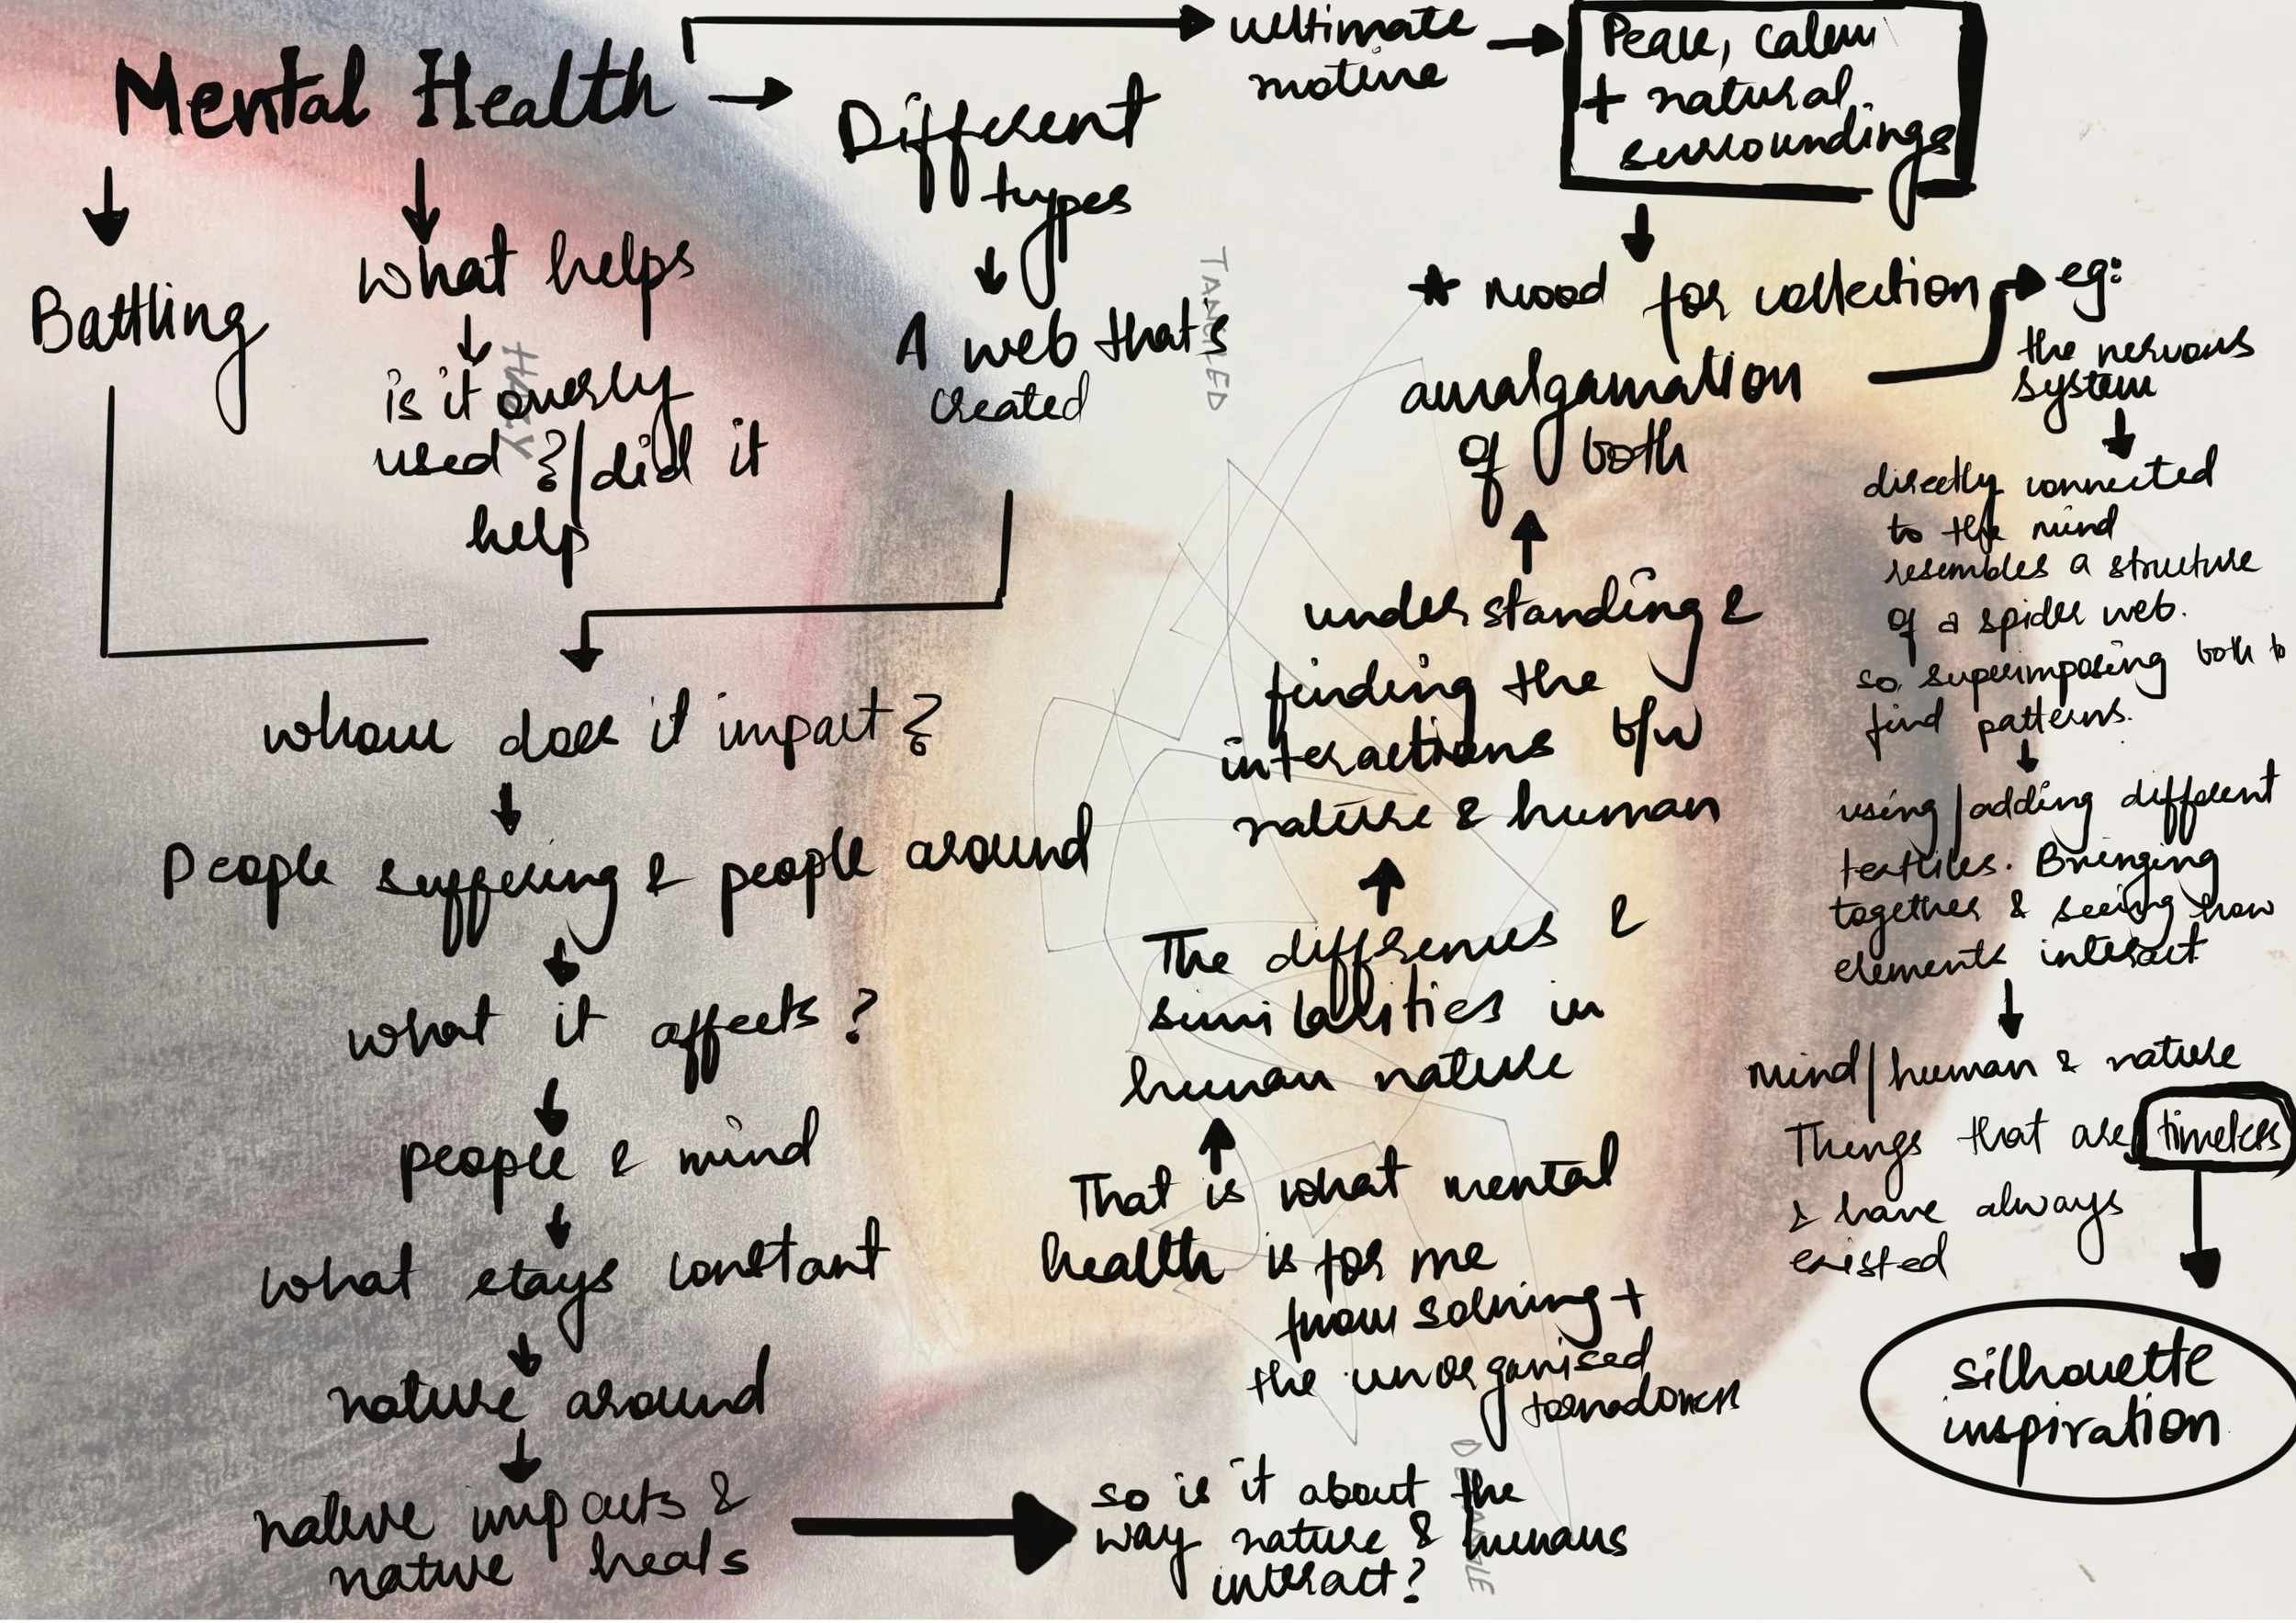 Mental Health
Battling
what helps
is it overly
used ? / did it
help
Different
types
A web that's
created
ultimate
motive
Peace, calm
+ natural
surroundings
whom does it impact?
People suffering & people around
what it affects?
people & mind
what stays constant
nature around
nature impacts &
nature heals
so is it about the
way nature & humans
interact?
That is what mental
health is for me
from solving +
the unorganised
The differences &
similarities in
human nature
understanding &
finding the
interactions b/w
nature & human
* mood for collection
amalgamation
of both
eg:
the nervous
system
directly connected
to the mind
resembles a structure
of a spider web.
so superimposing both to
find patterns.
using / adding different
textiles. Bringing
together & seeing how
elements interact
mind / human & nature
Things that are timeless
& have always
existed
silhouette
inspiration
HAZY
TANGLED